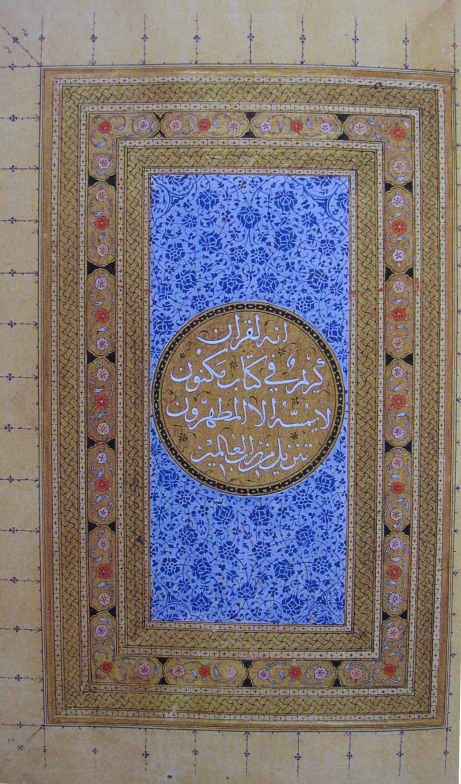 انه لقران
كريم في كتاب مكنون
لا يمسه الا المطهرون
تنزيل من رب العالمين